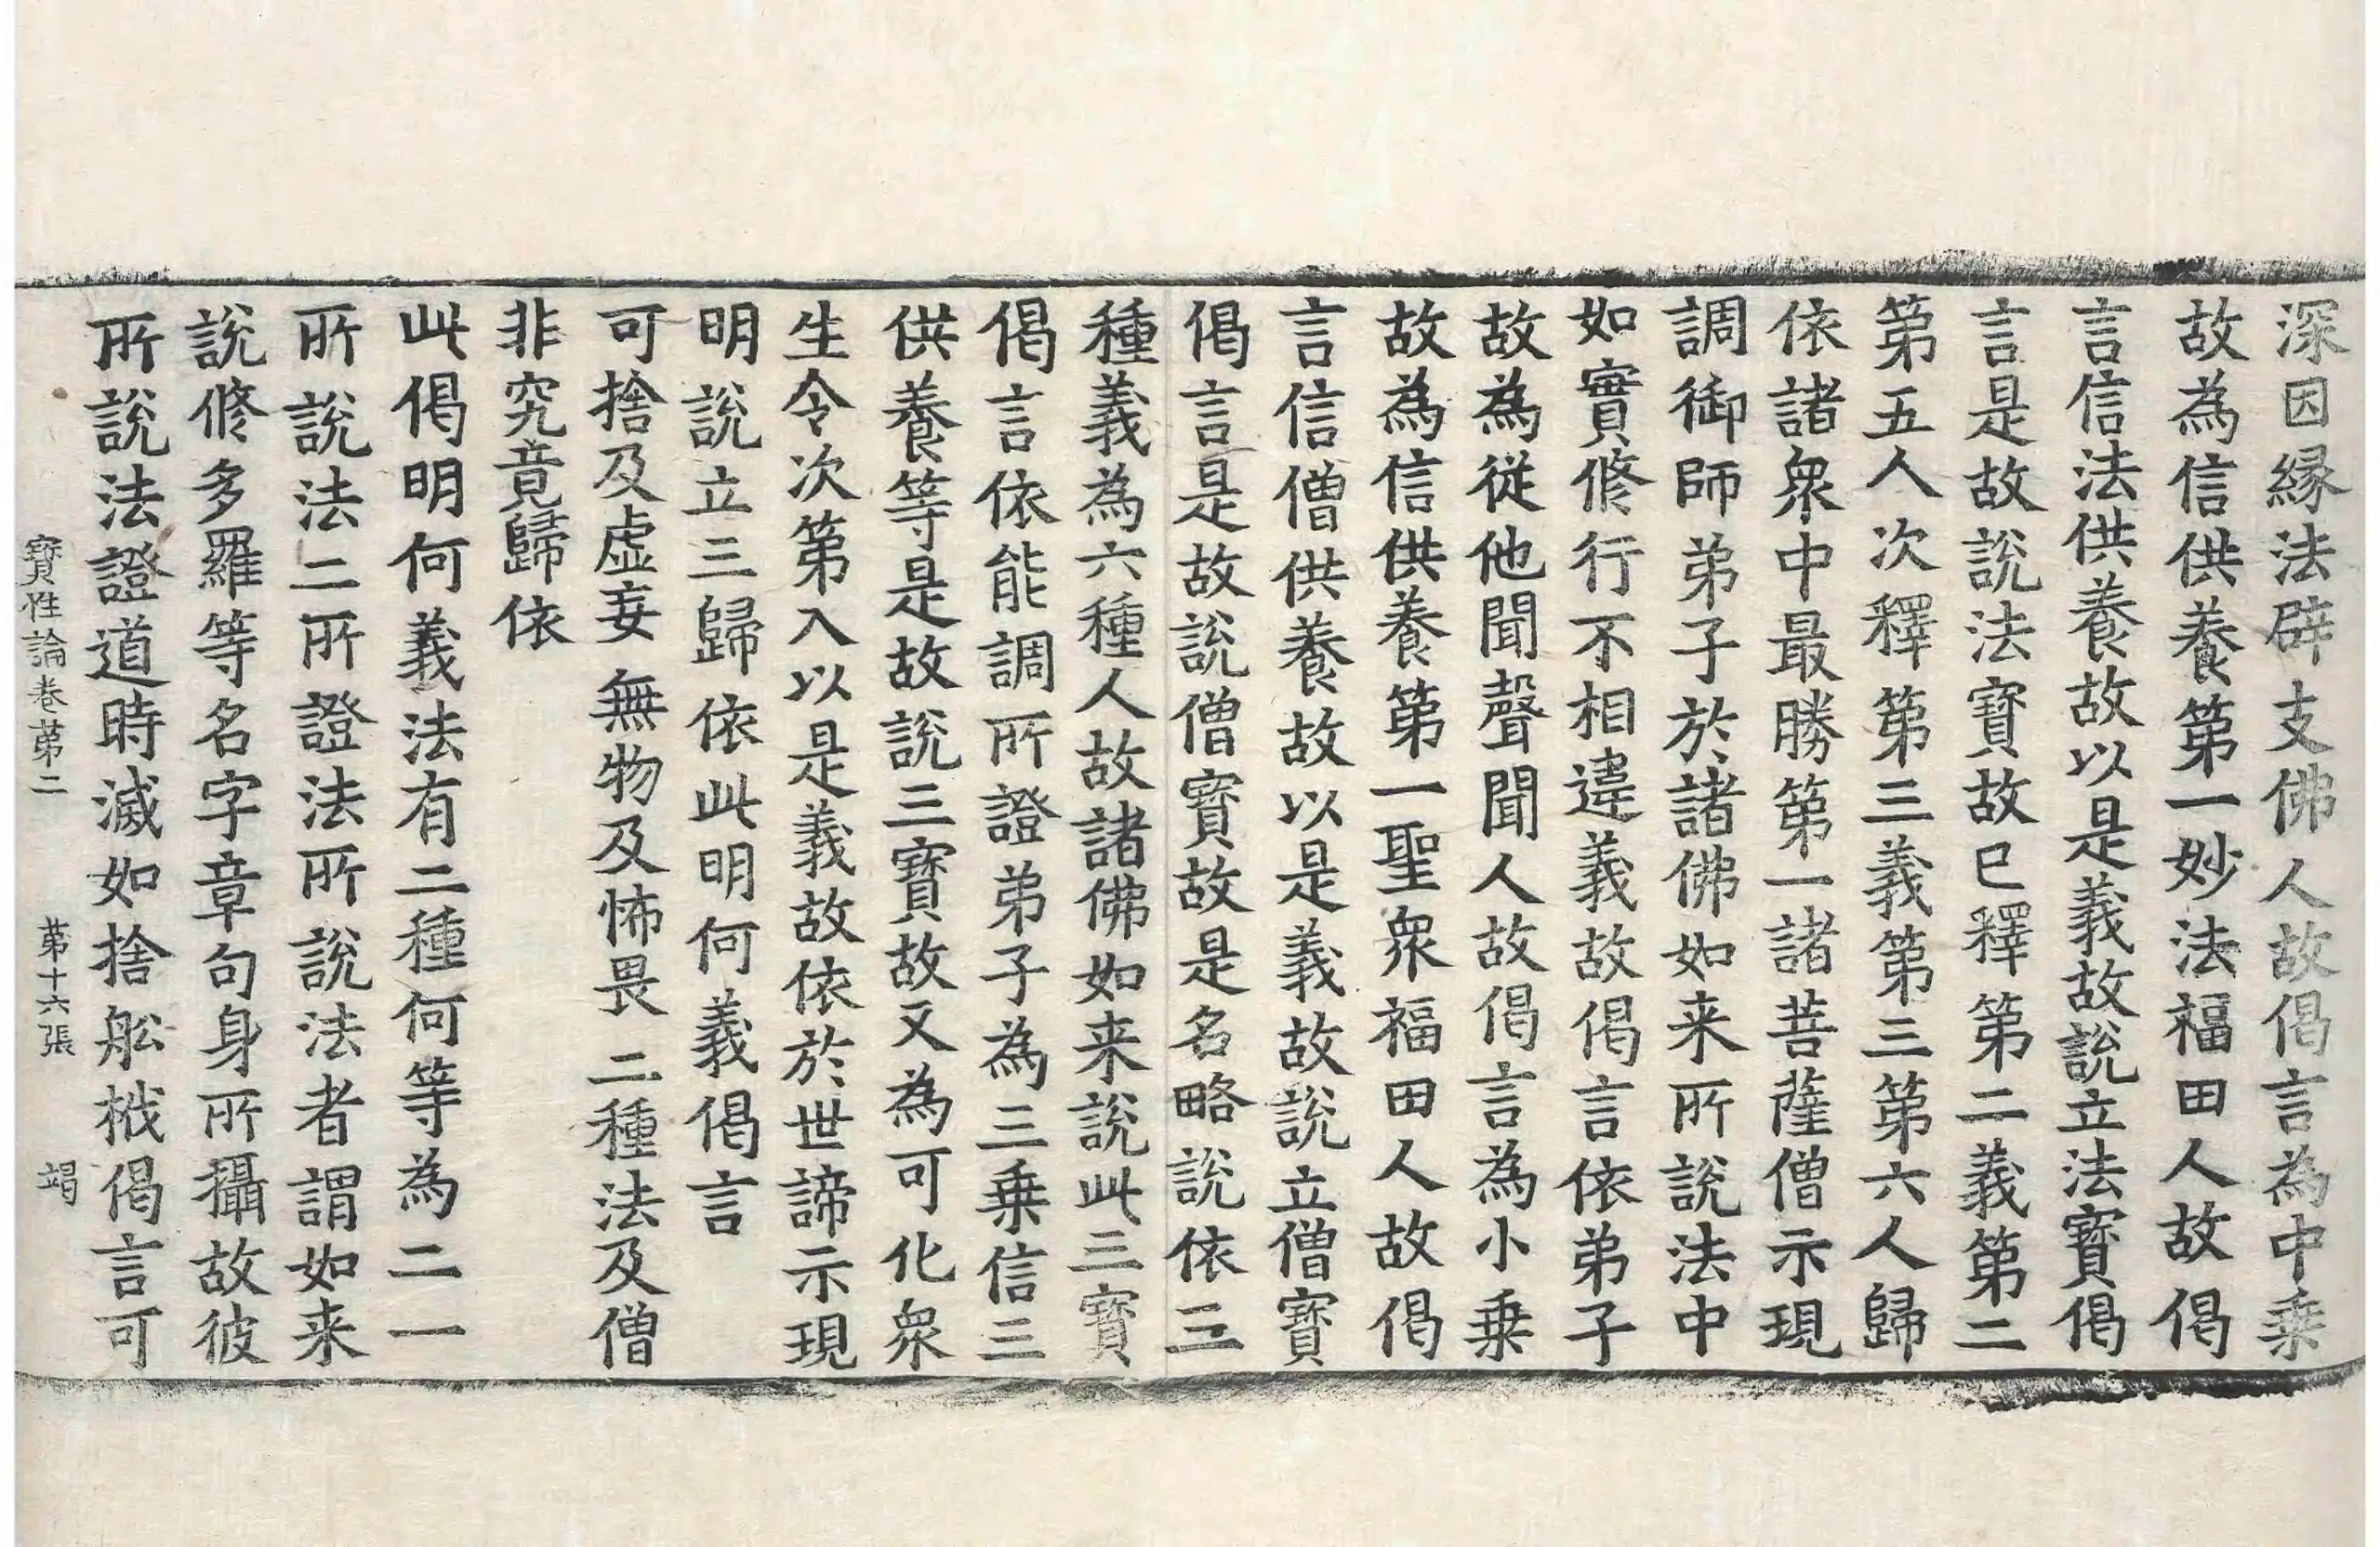 深因縁法辟支佛人故偈言為中乗
故為信供養第一妙法福田人故偈
言信法供養故以是義故說立法寶偈
言是故說法寶故已釋第二義第二
第五人次釋第三義第三第六人歸
依諸衆中最勝第一諸菩薩僧示現
調御師弟子於諸佛如来所說法中
如實修行不相違義故偈言依弟子
故為從他聞聲聞人故偈言為小乗
故為信供養第一聖衆福田人故偈
言信僧供養故以是義故說立僧寶
偈言是故說僧寶故是名略說依三
種義為六種人故諸佛如来說此三寶
偈言依能調所證弟子為三乗信三
供養等是故說三寶故又為可化衆
生令次第入以是義故依於世諦示現
明說立三歸依此明何義偈言
可捨及虚妄 無物及怖畏 二種法及僧
非究竟歸依
此偈明何義法有二種何等為二一
所說法二所證法所說法者謂如来
說修多羅等名字章句身所攝故彼
所說法證道時滅如捨舩栰偈言可
寶性論卷第二 第十六張 竭